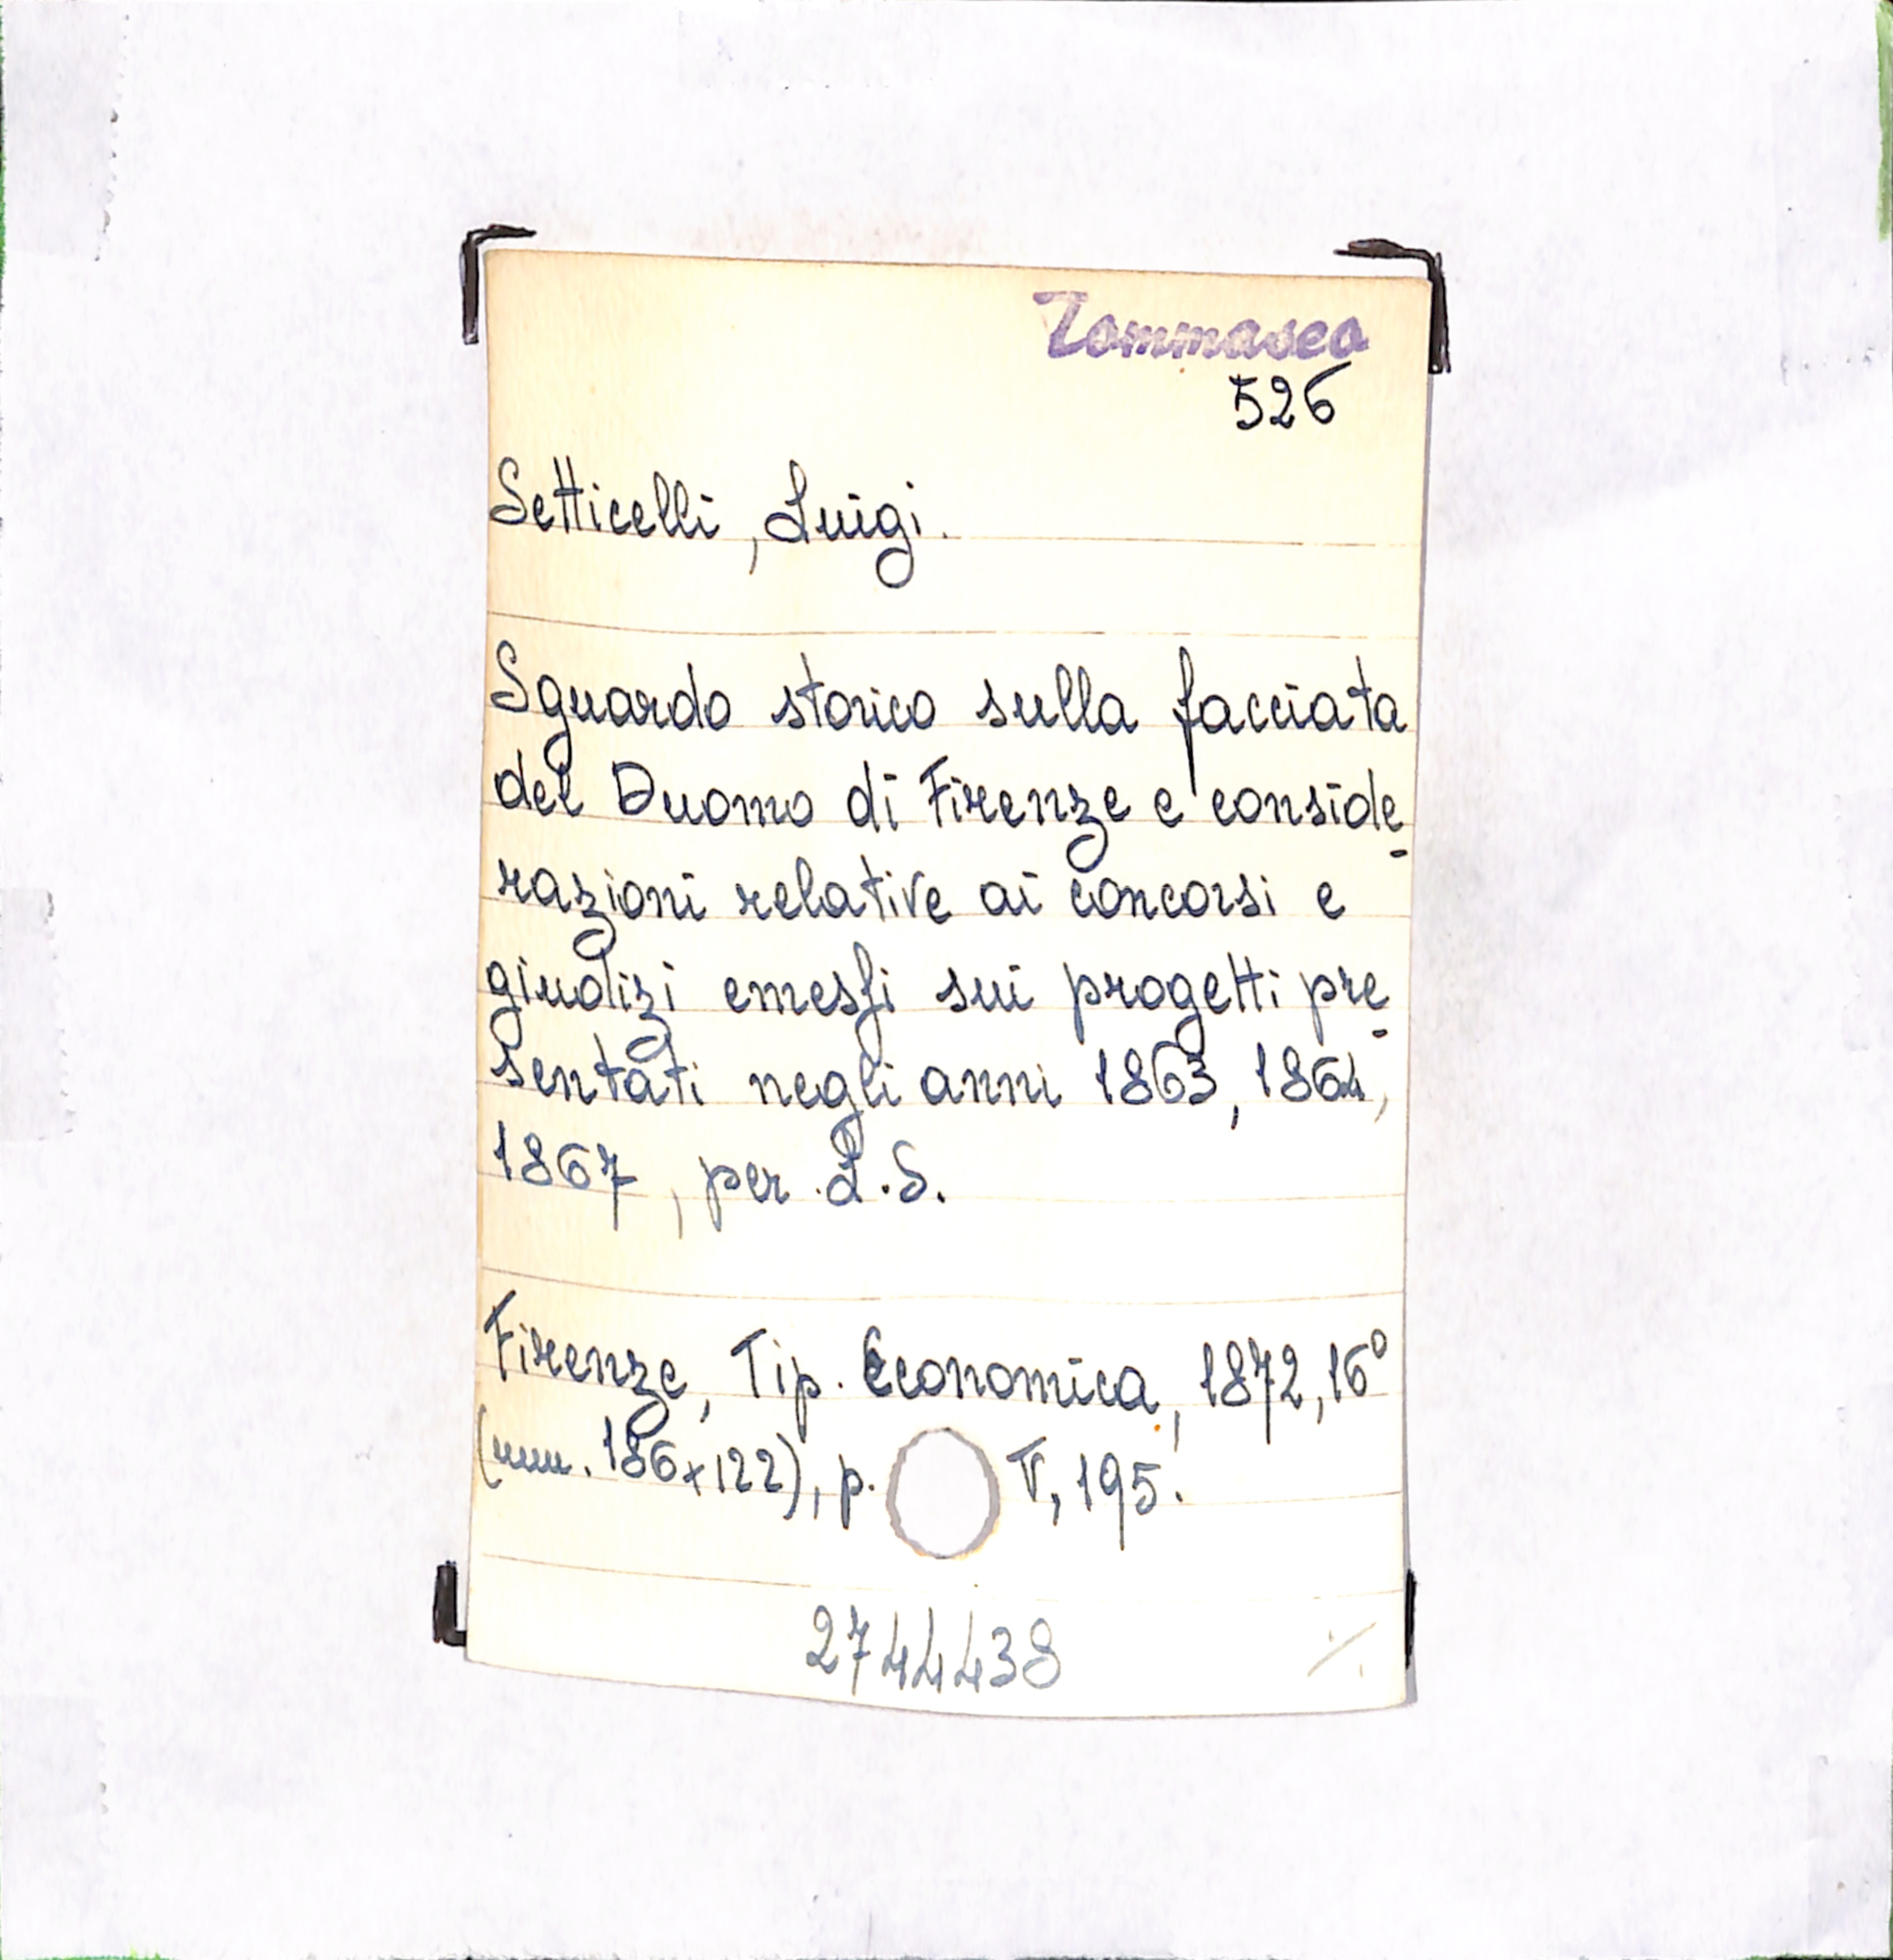 Tommaseo
526
Setticelli, Luigi.
Sguardo storico sulla facciata
del Duomo di Firenze e conside-
razioni relative ai concorsi e
giudizi emessi sui progetti pre-
sentati negli anni 1863, 1864,
1867, per L.S.
Firenze, Tip. Economica, 1872, 16°
(mm. 186x122), p. V, 195.
2744438